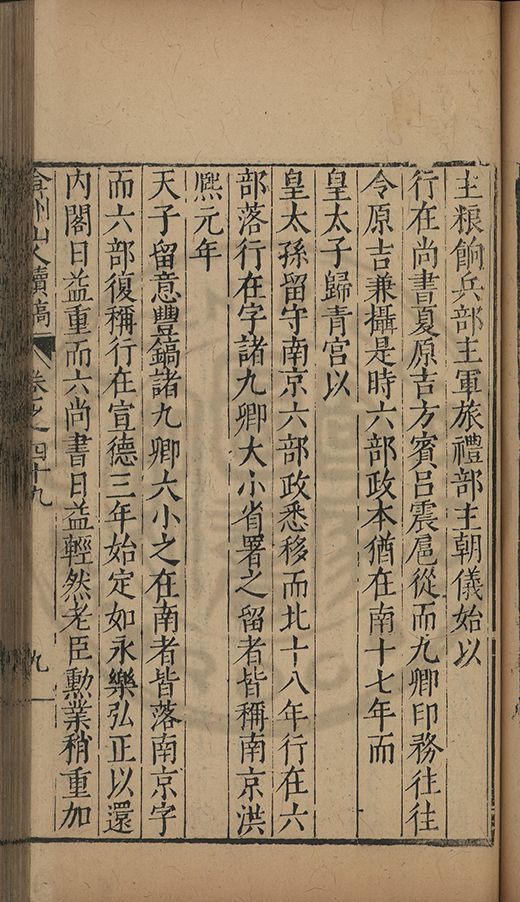 主粮餉兵部主軍旅禮部主朝儀始以
行在尚書夏原吉方賓呂震扈從而九卿印務往往
令原吉兼攝是時六部政本猶在南十七年而
皇太子歸青宮以
皇太孫留守南京六部政悉移而北十八年行在六
部落行在字諸九卿大小省署之留者皆稱南京洪
熈元年
天子留意豐鎬諸九卿大小之在南者皆落南京字
而六部復稱行在宣德三年始定如永樂弘正以還
內閣日益重而六尚書日益輕然老臣勲業稍重加
弇州山人續稿 卷之四十九 九